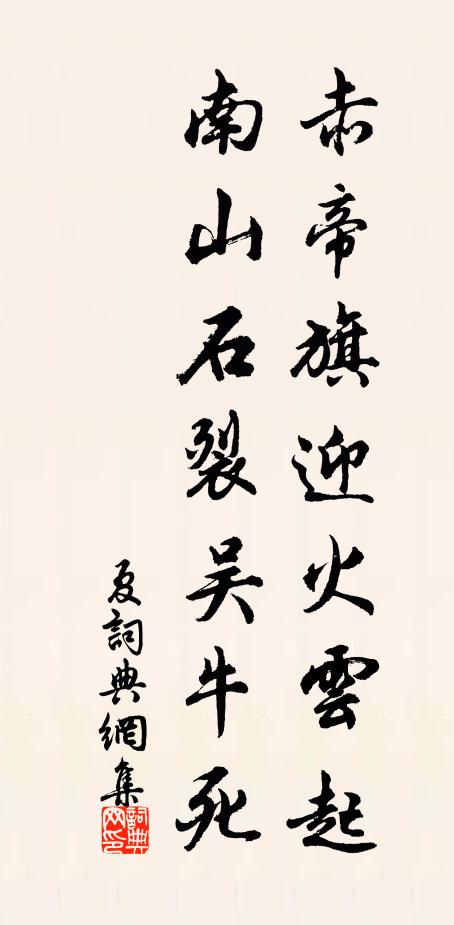 赤帝旗迎火雲起
南山石裂吴牛死
夏詞典網集
詞典网印